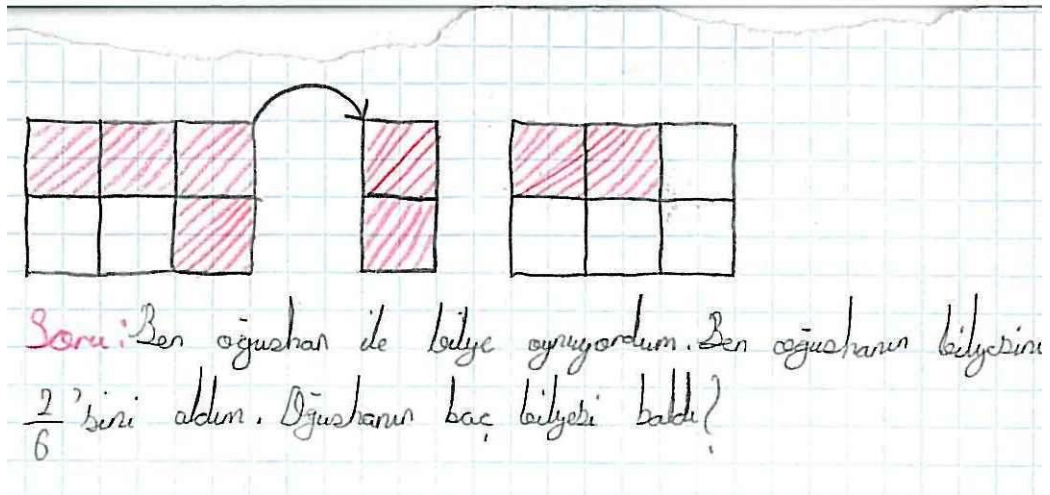 Soru: Ben oğushan ile bilye oynuyordum. Ben oğushanın bilyesini
2/6'sini aldım. Oğushanın kaç bilyesi kaldı?